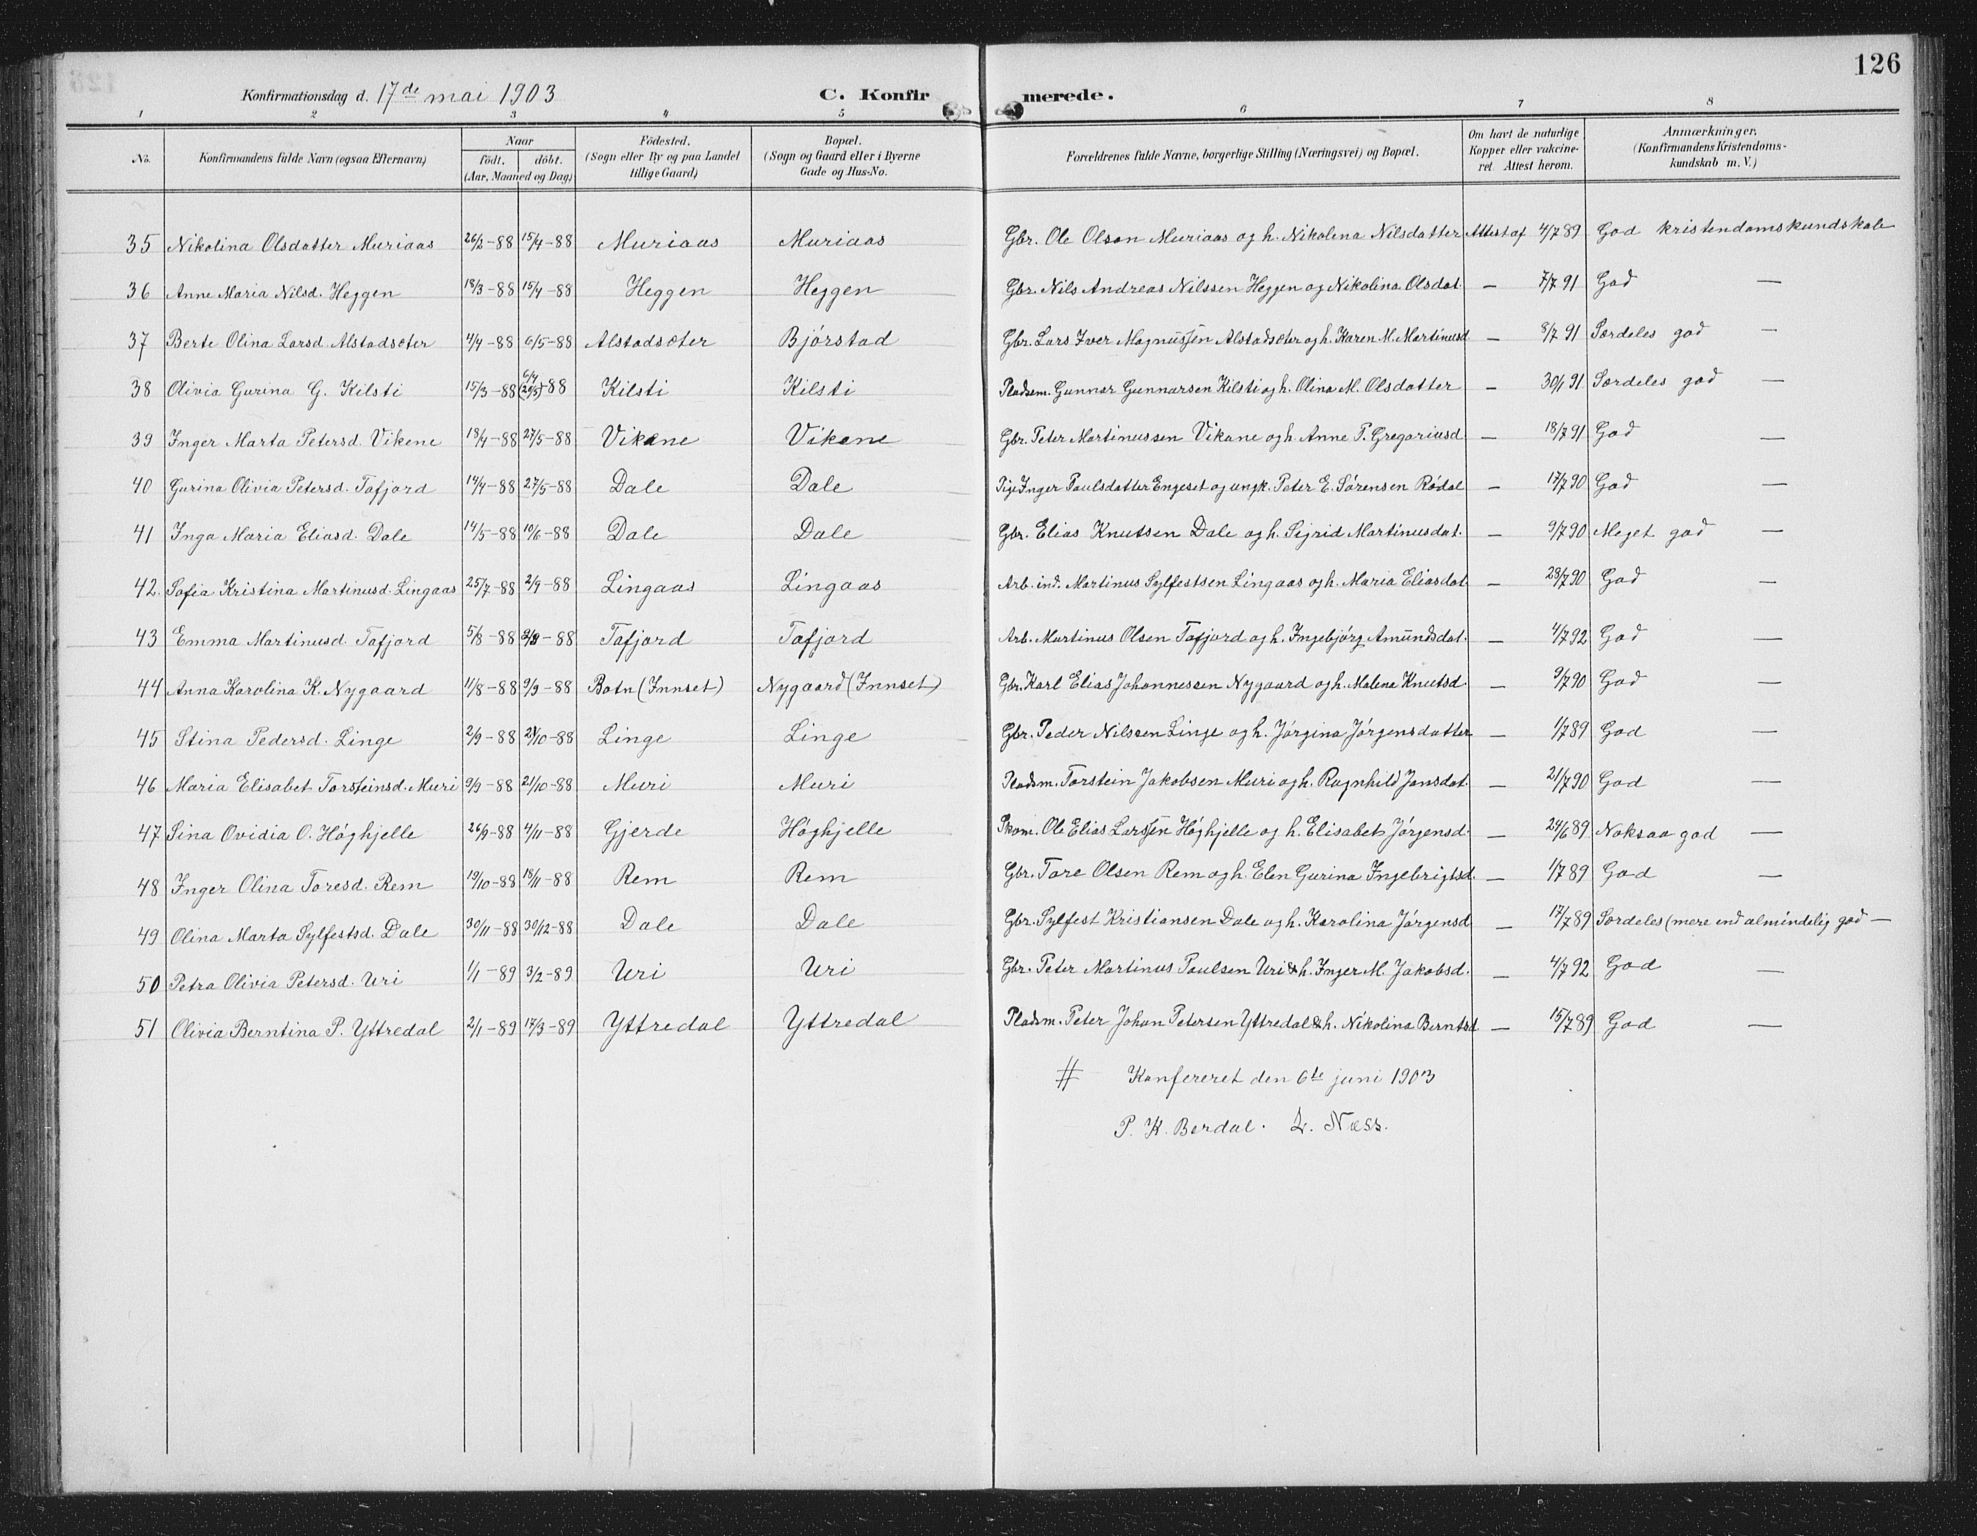 126
Konfirmationsdag d. 17de mai 1903 C. Konfirmerede.
1 2 3 4 5 6 7 8
No. Konfirmandens fulde Navn (ogsaa Efternavn) Naar født. døbt. (Aar, Maaned og Dag) Fødested. (Sogn eller By og paa Landet tillige Gaard) Bopæl. (Sogn og Gaard eller i Byerne Gade og Hus-No. Forældrenes fulde Navne, borgerlige Stilling (Næringsvei) og Bopæl. Om havt de naturlige Kopper eller vakcineret. Attest herom. Anmærkninger. (Konfirmandens Kristendomskundskab m. V.)
35 Nikolina Olsdatter Muriaas 26/2-88 15/4-88 Muriaas Muriaas Gbr. Ole Olson Muriaas og h. Nikolina Nilsdatter Attest af 4/7 89 God kristendomskundskab
36 Anne Maria Nilsd. Heggen 18/3-88 15/4-88 Heggen Heggen Gbr. Nils Andreas Nilssen Heggen og Nikolina Olsdat. — 7/7 91 God —
37 Berte Olina Larsd. Alstadsæter 4/4-88 6/5-88 Alstadsæter Bjórstad Gbr. Lars Iver Magnussen Alstadsæter og h. Karen M. Martinusd — 8/7 91 Særdeles god —
38 Olivia Gurina G. Kilsti 15/3-88 -88 Kilsti Kilsti Pladsm. Gunnar Gunnarsen Kilsti og h. Olina M. Olsdatter — 30/1 91 Særdeles god —
39 Inger Marta Petersd. Vikene 18/4-88 27/5-88 Vikane Vikane Gbr. Peter Martinussen Vikane og h. Anne P. Gregoriusd — 18/7 91 God —
40 Gurina Olivia Petersd. Tafjord 14/4-88 27/5-88 Dale Dale Pige Inger Paulsdatter Engeset og ungk. Peter E. Sórensen Ródal — 17/7 90 God —
41 Inga Maria Eliasd. Dale 14/5-88 10/6-88 Dale Dale Gbr. Elias Knutsen Dale og h. Sigrid Martinusdat. — 9/7 90 Meget god —
42 Sofia Kristina Martinusd. Lingaas 25/7-88 2/9-88 Lingaas Lingaas Arb. ind. Martinus Sylfestsen Lingaas og h. Maria Eliasdat — 28/7 90 God —
43 Emma Martinusd. Tafjord 5/8-88 -88 Tafjord Tafjord Arb. Martinus Olsen Tafjord og h. Ingebjórg Amundsdat. — 4/7 92 God —
44 Anna Karolina K. Nygaard 11/8-88 9/9-88 Botn (Innset) Nygaard (Innset) Gbr. Karl Elias Johannessen Nygaard og h. Malena Knutsd. — 9/7 90 God —
45 Stina Pedersd. Linge 2/9-88 21/10-88 Linge Linge Gbr. Peder Nilssen Linge og h. Jórgina Jórgensdatter — 1/7 89 God —
46 Maria Elisabet Torsteinsd. Muri 9/9-88 21/10-88 Muri Muri Pladsm. Torstein Jakobsen Muri og h. Ragnhild Jonsdat. — 21/7 90 God —
47 Sina Ovidia O. Hóghjelle 26/9-88 4/11-88 Gjerde Hóghjelle Ole Elias Larssen Hóghjelle og h. Elisabet Jórgensd. — 24/6 89 Noksaa god —
48 Inger Olina Toresd. Rem 19/10-88 18/11-88 Rem Rem Gbr. Tore Olsen Rem og h. Elen Gurina Ingebrigtsd. — 1/7 89 God —
49 Olina Marta Sylfestsd. Dale 30/11-88 30/12-88 Dale Dale Gbr. Sylfest Kristiansen Dale og h. Karolina Jórgensd — 17/7 89 Særdeles (mere end almindelig god —
50 Petra Olivia Petersd. Uri 1/1-89 3/2-89 Uri Uri Gbr. Peter Martinus Paulsen Uri & h. Inger M. Jakobsd. — 4/7 92 God —
51 Olivia Berntina P. Yttredal 2/1-89 17/3-89 Yttredal Yttredal Pladsm. Peter Johan Petersen Yttredal & h. Nikolina Berntsd — 15/7 89 God —
# Konfereret den 6te juni 1903
P. K. Berdal. L. Næss.